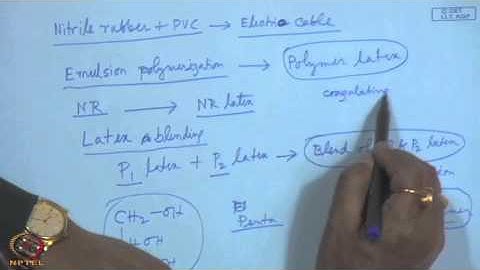 © CET
I.I.T. KGP
Nitrile rubber + PVC → Electric cable
Emulsion polymerization → Polymer latex
coagulating
NR → NR latex
Latex blending
P1 latex + P2 latex → Blend of & P2 latex
CH2-OH
Penta
OH
NPTEL